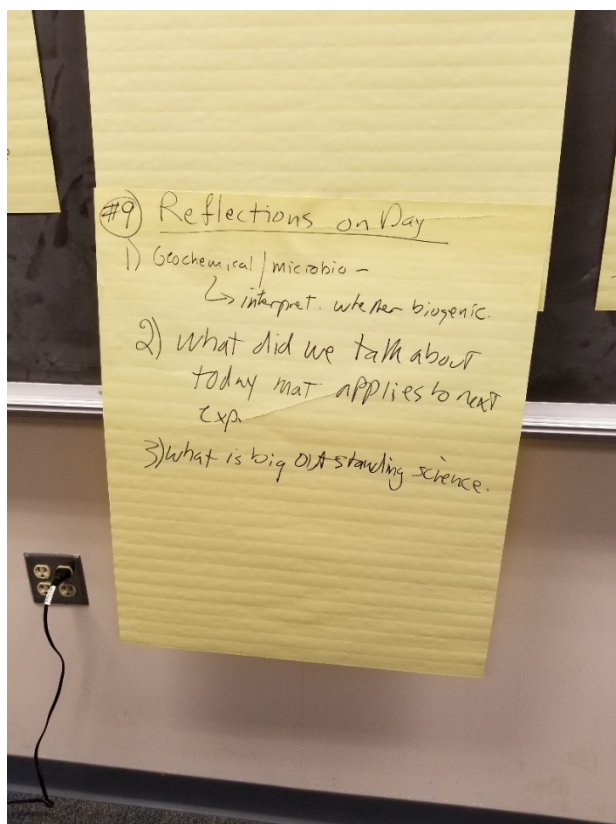 #9) Reflections on Day
1) Geochemical/microbio -
↳ interpret. whether biogenic.
2) what did we talk about
today that applies to next
exp.
3) what is big outstanding science.